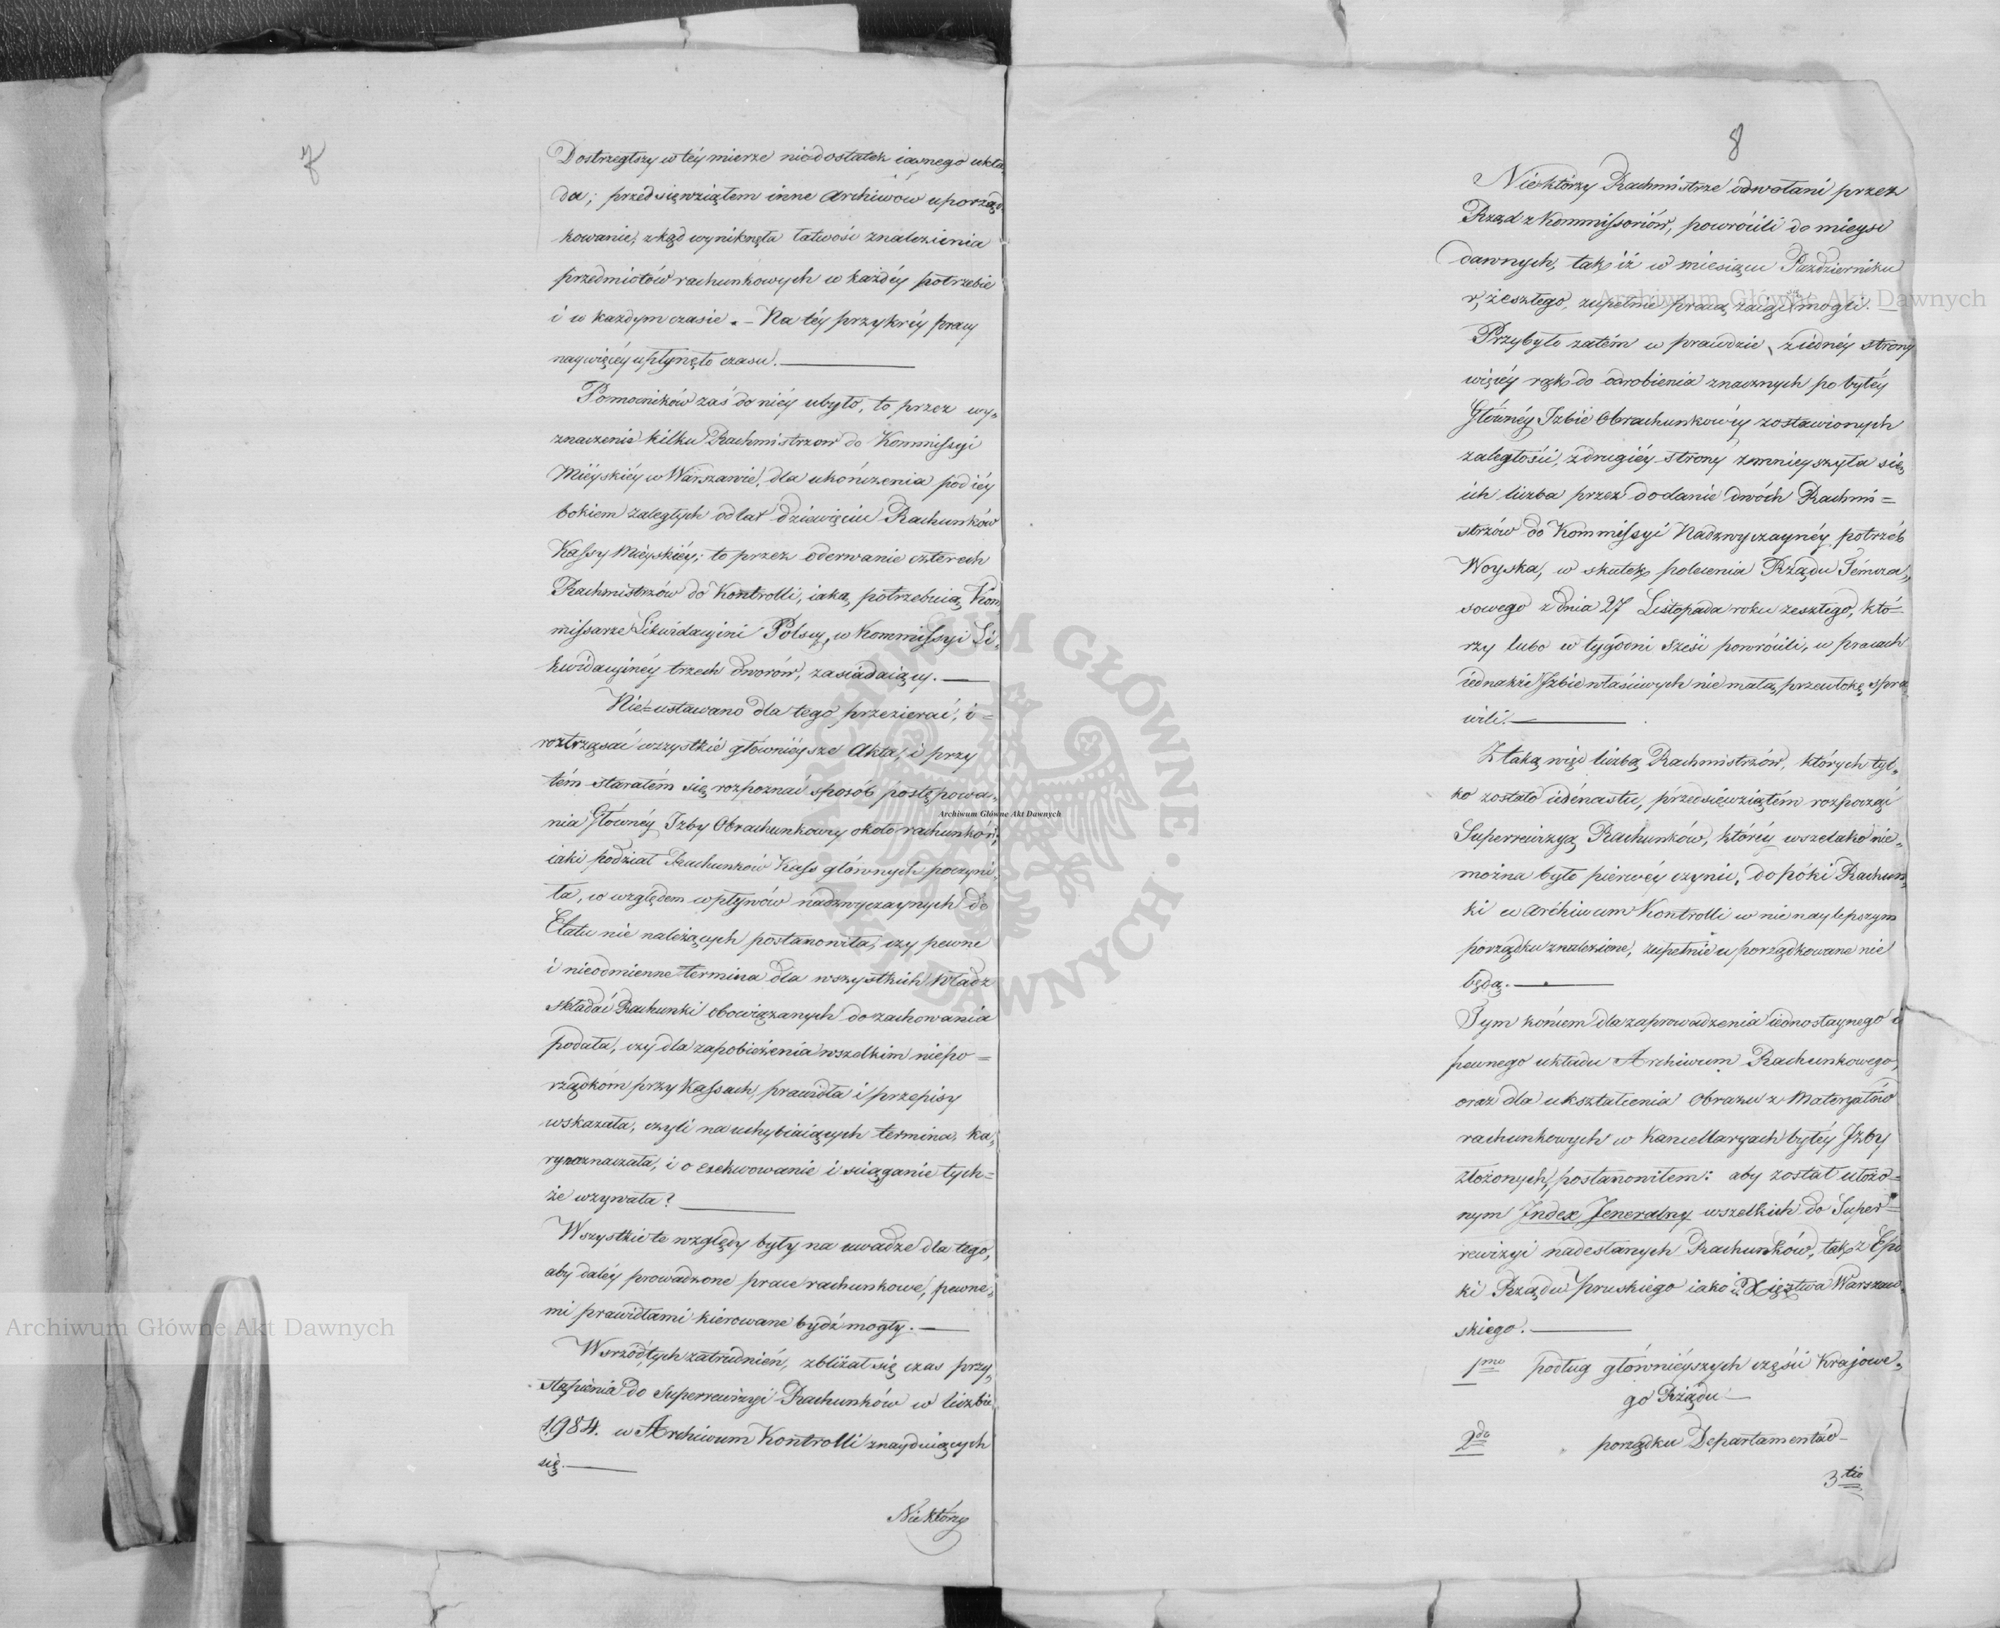 7
Dostrzegłszy w téy mierze niedostatek iawnego ukła
du; przedsięwziąłem inne Archiwów uporząd-
kowanie, zkąd wyniknęła łatwość znalezienia
przedmiotów rachunkowych w każdéy potrzebie
i w każdym czasie. – Na téy przykréy pracy
naywięcéy upłynęło czasu.
Pomocników zaś do niéy ubyło, to przez wy-
znaczenie kilku Rachmistrzow do Kommissyi
Mieyskiéy w Warszawie, dla ukończenia pod iéy
bokiem zaległych od lat dziewięciu Rachunków
Kassy Mieyskiéy; to przez oderwanie czterech
Rachmistrzów do Kontrolli, iaką potrzebuią Kom
missarze Likwidacyini Polscy, w Kommissyi Li-
kwidacyinéy trzech dworów, zasiadaiący.
Nie-ustawano dla tego przezierać, i-
roztrząsać wszystkie główniéysze Akta, i przy
tém starałém się rozpoznać sposób postępowa-
nia Głównéy Izby Obrachunkowy około rachunków,
iaki podział Rachunków Kass głównych poczyni-
ła, co względem wpływów nadzwyczaynych do
Etatu nie należących postanowiła, czy pewne
i nieodmienne termina dla wszystkich Władz
składać Rachunki obowiązanych do zachowania
podała, czy dla zapobieżenia wszelkim niepo-
rządkóm przy Kassach, prawidła i przepisy
wskazała, czyli na uchybiaiących termina, ka-
ry oznaczała, i o exekwowanie i sciąganie tych-
że wzywała?
Wszystkie te względy były na uwadze dla tego,
aby daléy prowadzone prace rachunkowe, pewne-
mi prawidłami kierowane bydź mogły.
Wsrzód tych zatrudnień, zbliżał się czas przy-
stąpienia do Superrewizyi Rachunków w liczbie
1,984. w Archiwum Kontrolli znayduiących
się.
Niektórzy
8
Niektórzy Rachmistrze odwołani przez
Rząd z Kommissoriów, powrócili do mieysc
dawnych, tak iż w miesiącu Październiku
r, zeszłego, zupełnie pracą zaiąć się mogli. –
Przybyło zatém w prawdzie, z iednéy strony
więcéy rąk do odrobienia znacznych po byłéy
Głównéy Izbie Obrachunkowéy zostawionych
zaległości, z drugiéy strony zmnieyszyła się
ich liczba przez dodanie dwóch Rachmi-
strzów do Kommissyi Nadzwyczaynéy potrzéb
Woyska, w skutek polecenia Rządu Témcza-
sowego z dnia 27 Listopada roku zeszłego, któ-
rzy lubo w tygodni sześć powrócili, w pracach
iednakże Izbie właściwych nie małą przewłokę spra-
wili.
Z taką więc liczbą Rachmistrzów, których tyl-
ko zostało iedénastu, przedsięwziąłém rozpocząć
Superrewizyą Rachunków, któréy wszelako nie-
można było pierwéy czynić, dopóki Rachun-
ki w Archiwum Kontrolli w nie naylepszym
porządku znalezione, zupełnie uporządkowane nie
będą.
Tym końcem dla zaprowadzenia iednostaynego i
pewnego układu Archiwum Rachunkowego,
oraz dla ukształcenia Obrazu z Materyałów
rachunkowych w Kancellaryach byłéy Izby
złożonych, postanowiłem: aby został ułożo-
nym Index Jeneralny wszelkich do Super-
rewizyi nadesłanych Rachunków, tak z Epo
ki Rządu Pruskiego iako i Xięztwa Warszaw-
skiego.
1mo podług główniéyszych części Krajowe-
go Rządu –
2do porządku Departamentów –
3tio
Archiwum Główne Akt Dawnych
Archiwum Główne Akt Dawnych
Archiwum Główne Akt Dawnych
ARCHIWUM GŁÓWNE AKT DAWNYCH